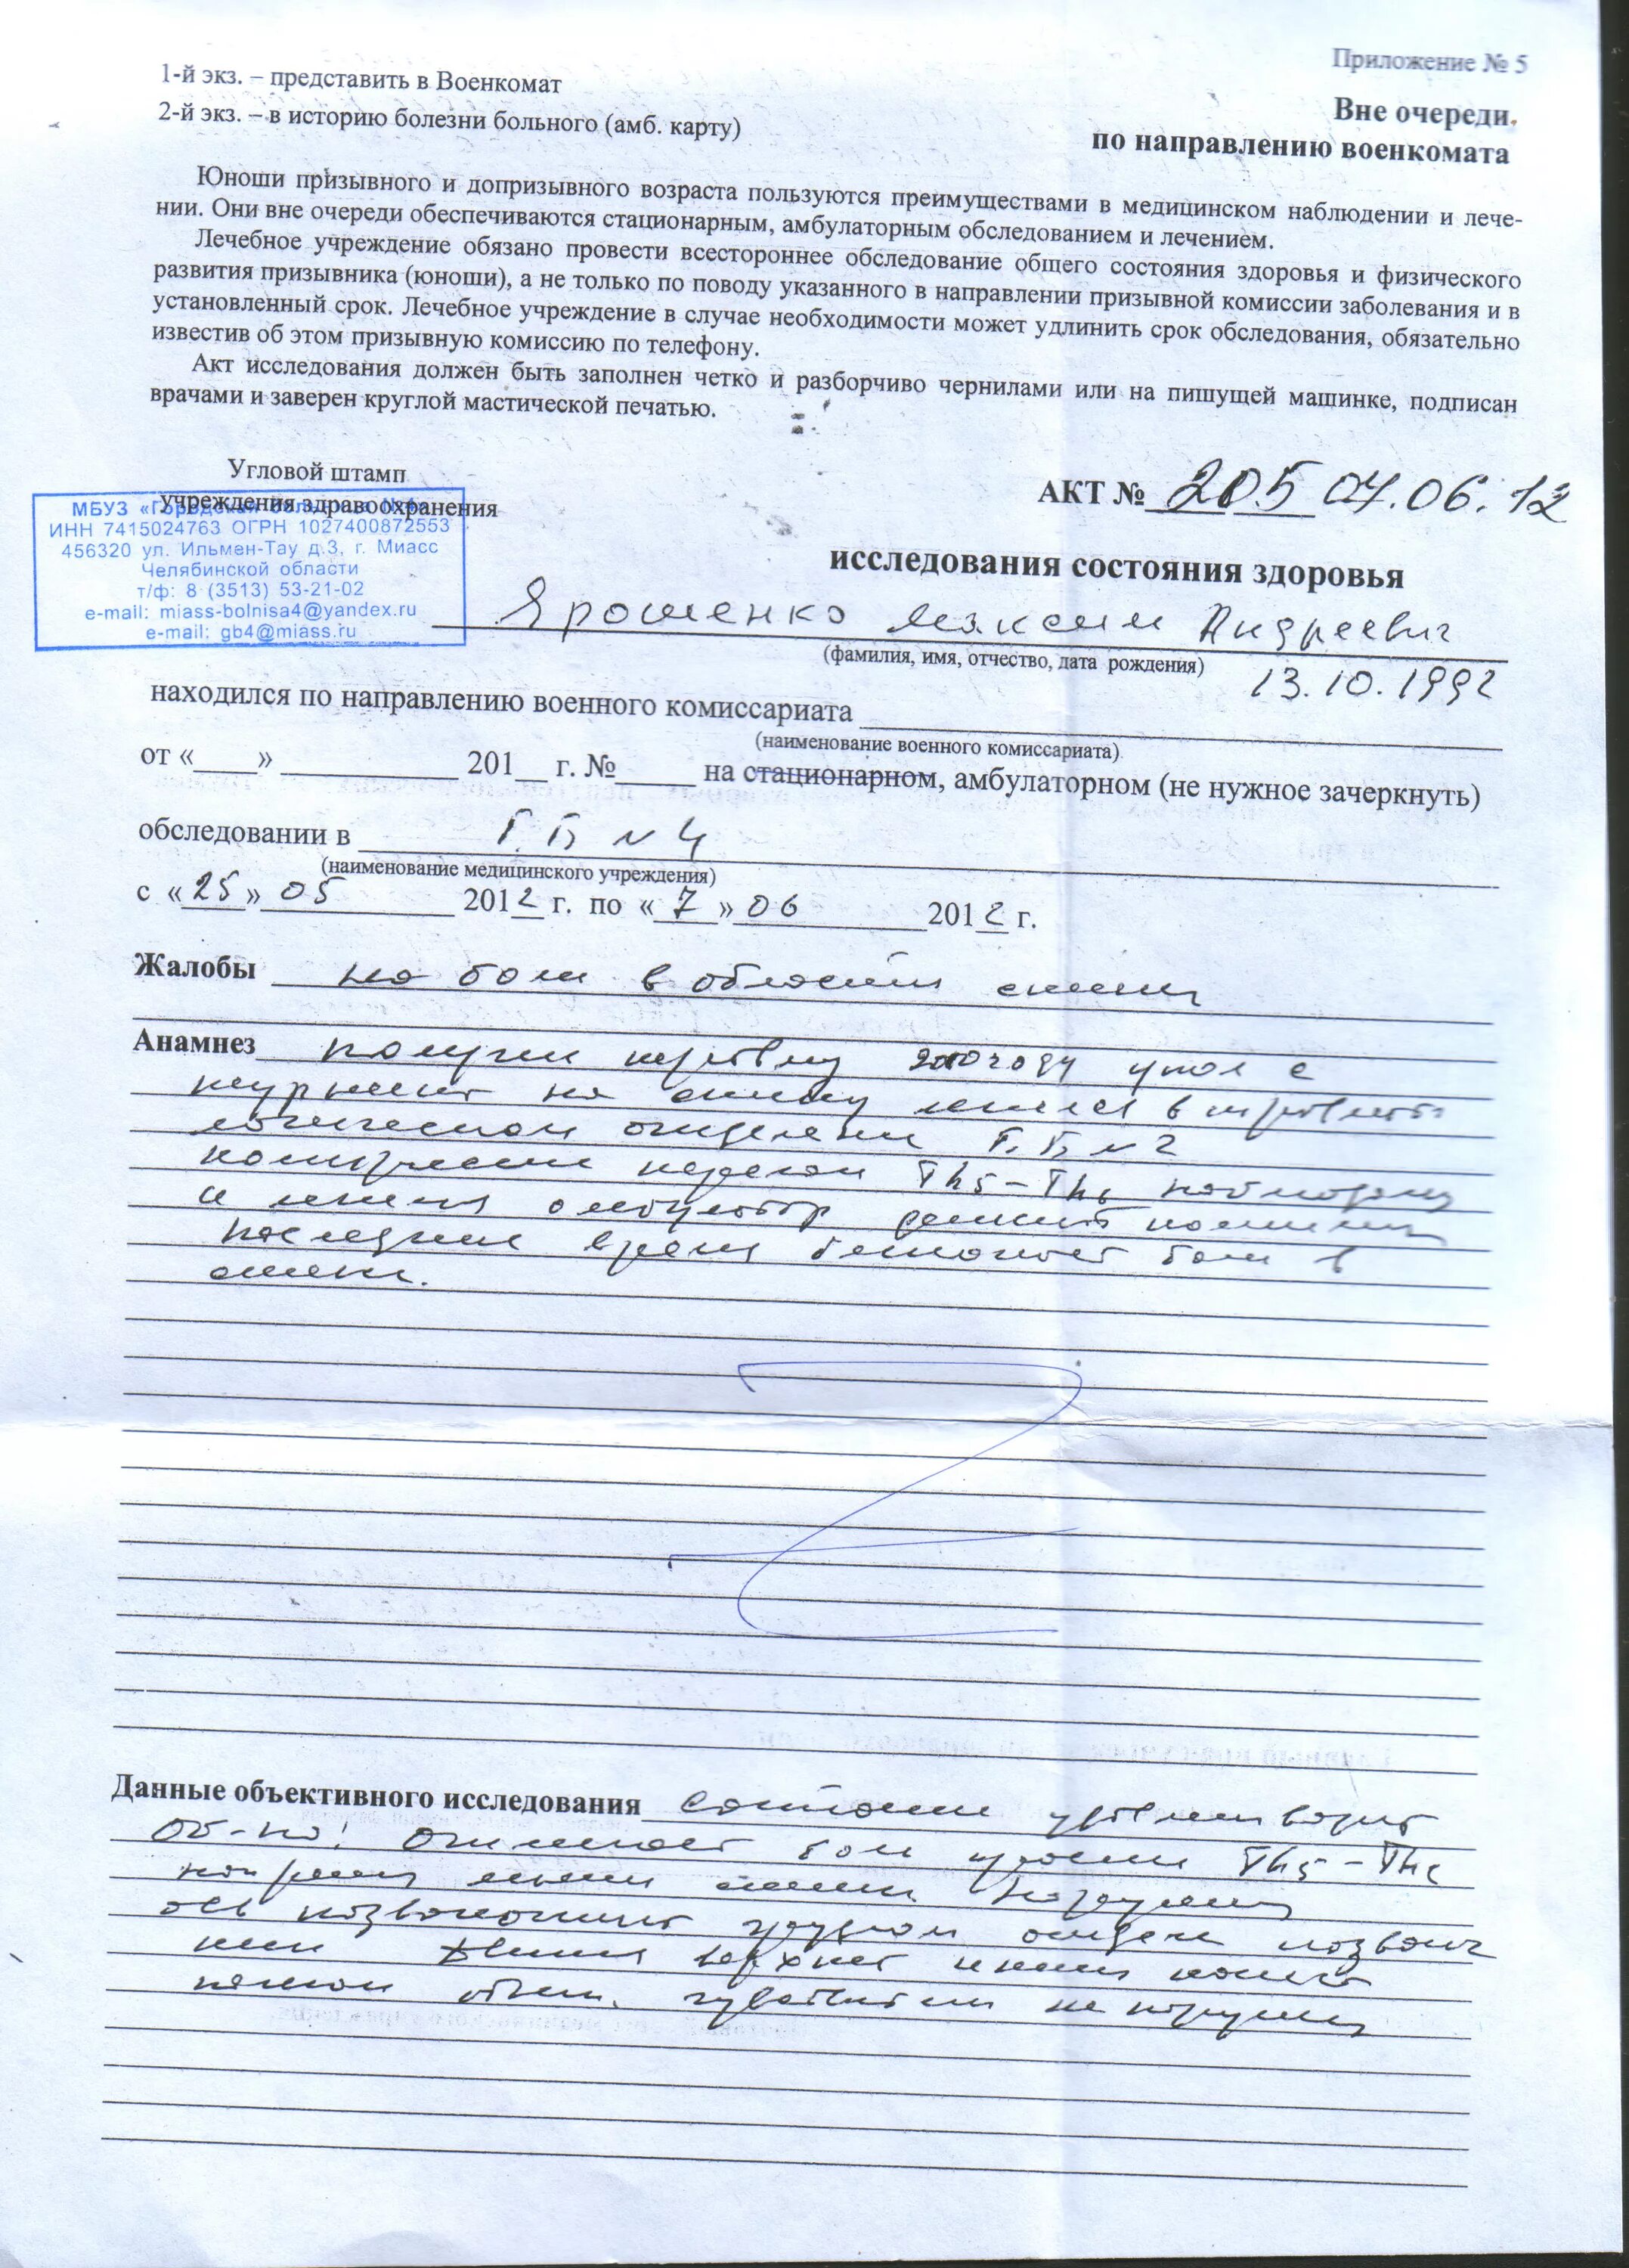 Приложение № 5
1-й экз. – представить в Военкомат
2-й экз. – в историю болезни больного (амб. карту)
Вне очереди.
по направлению военкомата
Юноши призывного и допризывного возраста пользуются преимуществами в медицинском наблюдении и лече-
нии. Они вне очереди обеспечиваются стационарным, амбулаторным обследованием и лечением.
Лечебное учреждение обязано провести всестороннее обследование общего состояния здоровья и физического
развития призывника (юноши), а не только по поводу указанного в направлении призывной комиссии заболевания и в
установленный срок. Лечебное учреждение в случае необходимости может удлинить срок обследования, обязательно
известив об этом призывную комиссию по телефону.
Акт исследования должен быть заполнен четко и разборчиво чернилами или на пишущей машинке, подписан
врачами и заверен круглой мастической печатью.
Угловой штамп
учреждения здравоохранения
МБУЗ «Городская больница №4»
ИНН 7415024763 ОГРН 1027400872553
456320 ул. Ильмен-Тау д.3, г. Миасс
Челябинской области
т/ф: 8 (3513) 53-21-02
e-mail: miass-bolnisa4@yandex.ru
e-mail: gb4@miass.ru
АКТ № 205 07.06.12
исследования состояния здоровья
Ярошенко Максим Андреевич
(фамилия, имя, отчество, дата рождения)
13.10.1992
находился по направлению военного комиссариата
(наименование военного комиссариата)
от «____» ____________ 201__ г. №_____ на стационарном, амбулаторном (не нужное зачеркнуть)
обследовании в Г.Б №4
(наименование медицинского учреждения)
с «25» 05 2012 г. по «7» 06 2012 г.
Жалобы на боли в области спины
Анамнез получил травму году упал с
на спину лечился в травмато-
логическом отделении Г.Б №2
перелом Th5-Th6
и лечился
последнее время беспокоят боли в
спине.
Данные объективного исследования состояние удовлетворит
Об-но: отмечает боли Th5-Th6
мышцы спины
ось позвоночника грудном отделе позвоноч
верхних и нижних конеч
полном объеме. чувствительн не нарушена